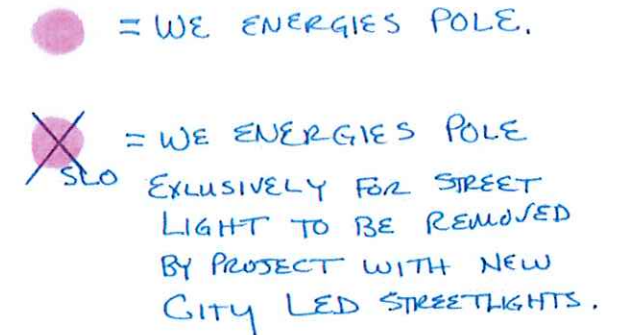 = WE ENERGIES POLE.
= WE ENERGIES POLE
SLO EXLUSIVELY FOR STREET
LIGHT TO BE REMOVED
BY PROJECT WITH NEW
CITY LED STREETLIGHTS.